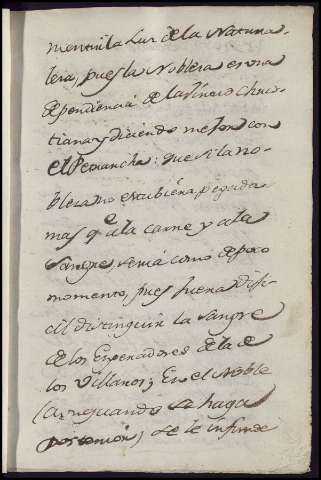 mentir la Luz de la Natura-
leza, pues la Nobleza es una
dependencia de la
tiana y diciendo mejor con
el Petrarcha: que si la no-
bleza no estubiera pegada
mas qe a la carne y a la
Sangre, seria como de poco
momento, pues fuera difi-
cil distinguir la sangre
de los Emperadores de la de
los Villanos; En el Noble
(aunquando se haga
se le infunde